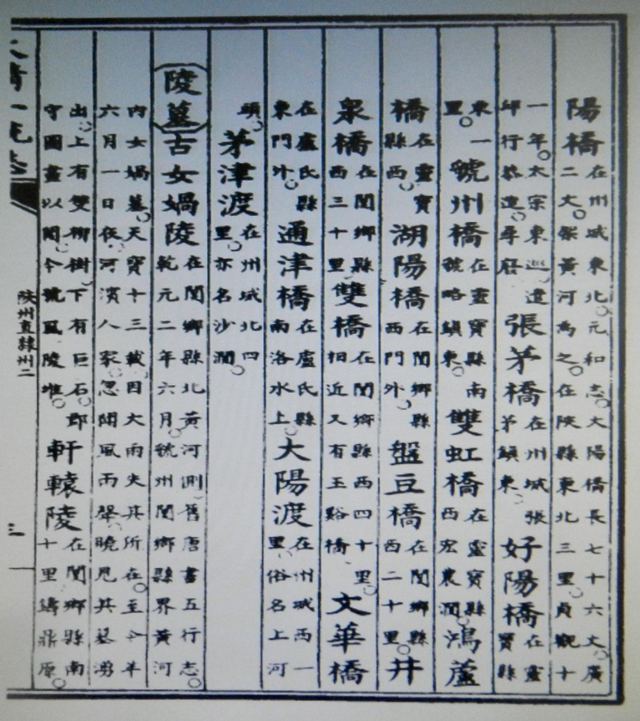 陽橋在州城東北元和志大陽橋長七十六丈廣二丈架黃河為之在陝縣東北三里貞觀十
一年太宗東巡遣邱行恭造尋廢張茅橋在州城張茅鎮東好陽橋在靈寶縣
東一里虢州橋在靈寶縣南虢略鎮東雙虹橋在靈寶縣西宏農澗鴻蘆
橋在靈寶縣西湖陽橋在閿鄉縣西門外盤豆橋在閿鄉縣西二十里井
泉橋在閿鄉縣西三十里雙橋在閿鄉縣西四十里相近又有玉谿橋文華橋
在盧氏縣東門外通津橋在盧氏縣南洛水上大陽渡在州城西一里俗名上河
頭茅津渡在州城北四里亦名沙澗
陵墓古女媧陵在閿鄉縣北黃河側舊唐書五行志乾元二年六月虢州閿鄉縣界黃河
內女媧墓天寶十三載因大雨失其所在至今年六月一日夜河濱人家忽聞風雨聲曉見其墓湧
出上有雙柳樹下有巨石郡守圖畫以聞今號風陵堆軒轅陵在閿鄉縣南十里鑄鼎原
大清一統志
陝州直隸州二